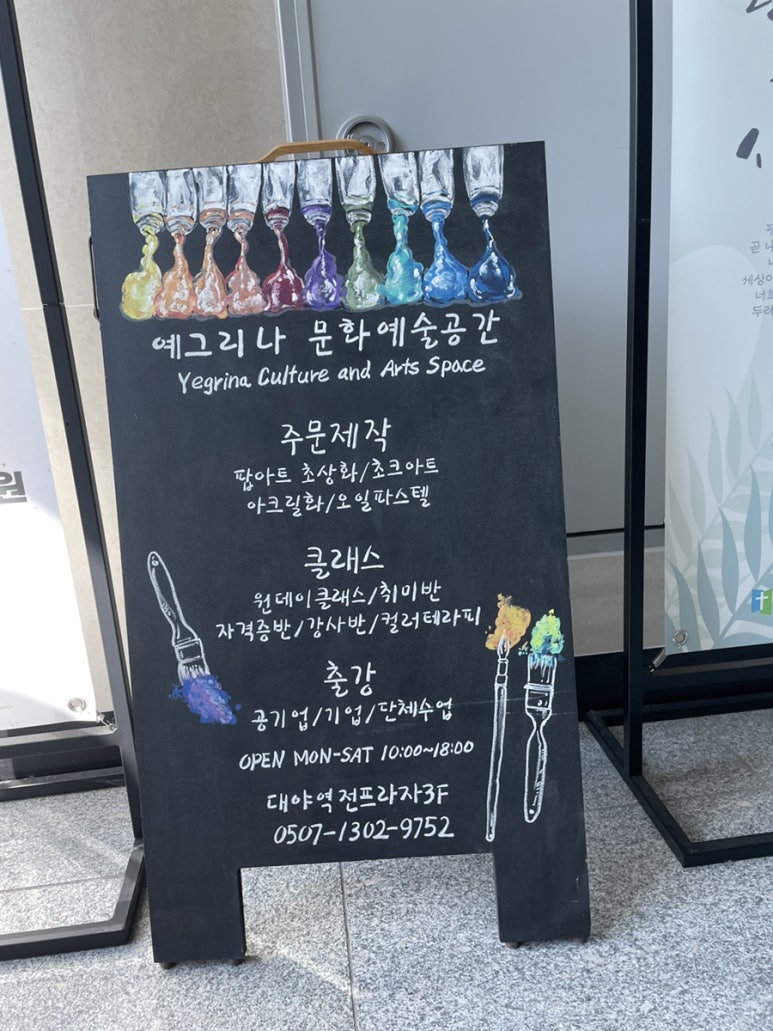 예그리나 문화예술공간
Yegrina Culture and Arts Space
주문제작
팝아트 초상화/초크아트
아크릴화/오일파스텔
클래스
원데이클래스/취미반
자격증반/강사반/컬러테라피
출강
공기업/기업/단체수업
OPEN MON-SAT 10:00~18:00
대야역전프라자3F
0507-1302-9752
원
곧 내
세상이
너희
두려